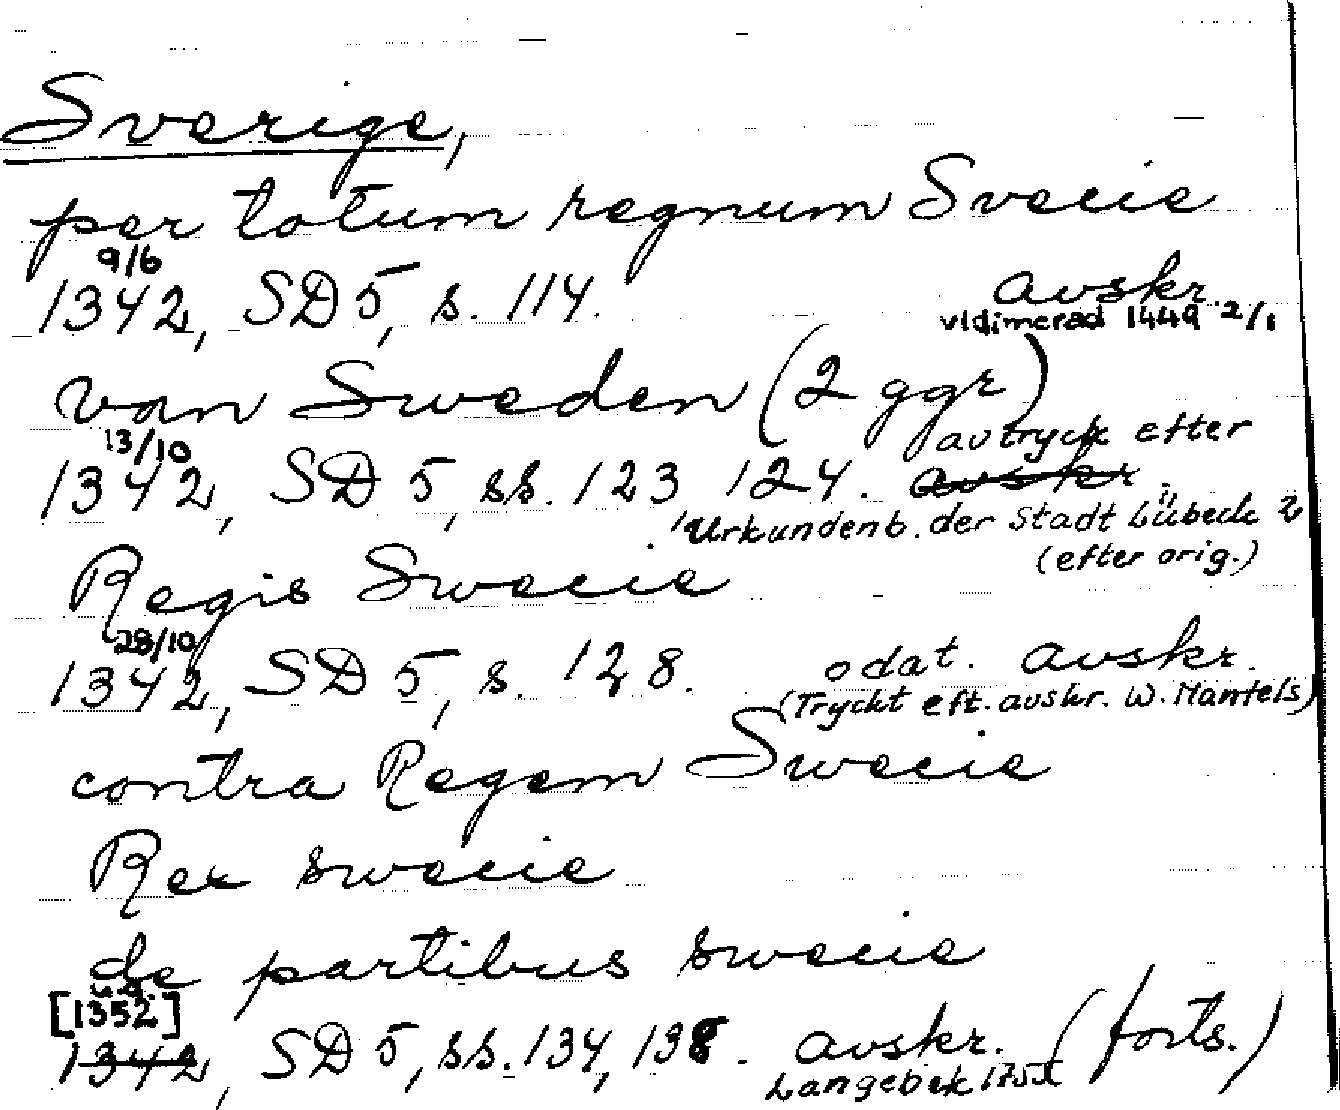 Sverige,
per totum regnum Svecie
9/6
1342, SD 5, s. 114. avskr.
vidimerad 1449 2/1
van Sweden (2 ggr)
13/10 avtryck efter
1342, SD 5, ss. 123 124. avskr
Urkundenb. der Stadt Lübeck 2
(efter orig.)
Regis Swecie
28/10
1342, SD 5, s. 128. odat. avskr.
(Tryckt eft. avskr. W. Mantels)
contra Regem Swecie
Rex swecie
de partibus swecie
u.å.
[1352]
1342, SD 5, ss. 134, 138. avskr. (forts.)
Langebek